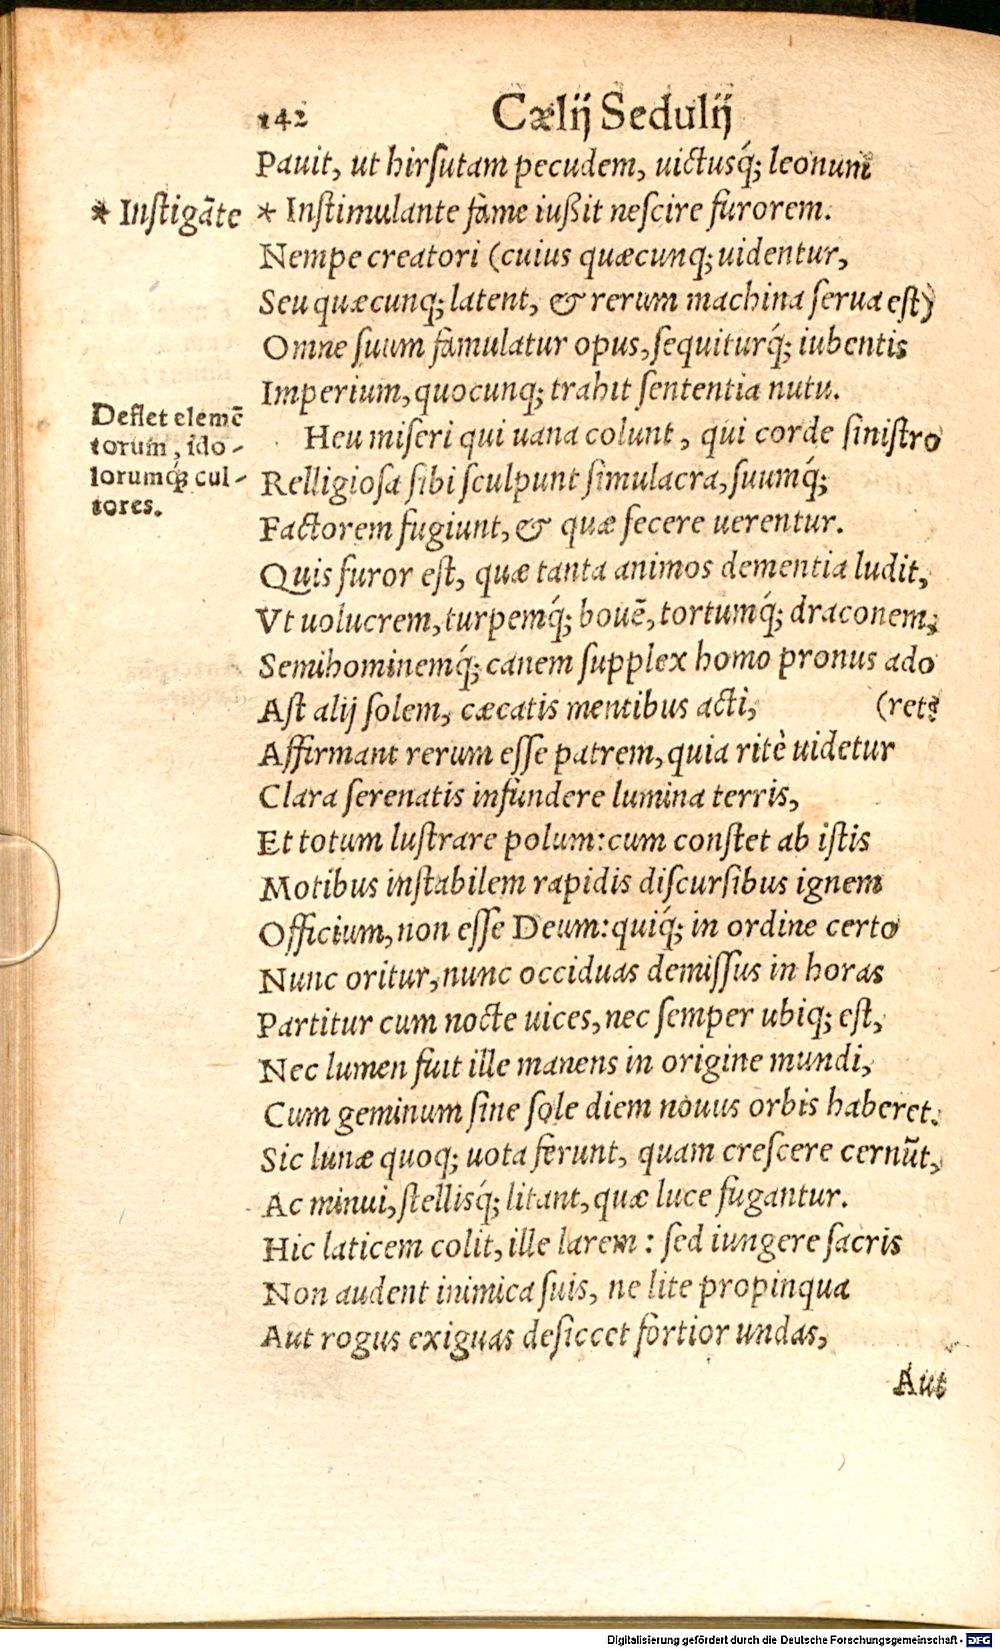 142 Cælij Sedulij
Pauit, ut hirſutam pecudem, uictusq́; leonum
* Inſtigāte
* Inſtimulante fame iußit neſcire furorem.
Nempe creatori (cuius quæcunq; uidentur,
Seu quæcunq; latent, & rerum machina ſerua eſt)
Omne ſuum famulatur opus, ſequiturq́; iubentis
Imperium, quocunq; trahit ſententia nutu.
Deflet elemē
torum, ido-
lorumq́ꝫ cul-
tores.
Heu miſeri qui uana colunt, qui corde ſiniſtro
Relligioſa ſibi ſculpunt ſimulacra, ſuumq́;
Factorem fugiunt, & quæ fecere uerentur.
Quis furor eſt, quæ tanta animos dementia ludit,
Vt uolucrem, turpemq́; bouē, tortumq́; draconem,
Semihominemq́; canem ſupplex homo pronus ado
Aſt alij ſolem, cæcatis mentibus acti, (ret?
Affirmant rerum eſſe patrem, quia ritè uidetur
Clara ſerenatis infundere lumina terris,
Et totum luſtrare polum: cum conſtet ab iſtis
Motibus inſtabilem rapidis diſcurſibus ignem
Officium, non eſſe Deum: quiq́; in ordine certo
Nunc oritur, nunc occiduas demiſſus in horas
Partitur cum nocte uices, nec ſemper ubiq; eſt,
Nec lumen fuit ille manens in origine mundi,
Cum geminum ſine ſole diem nouus orbis haberet.
Sic lunæ quoq; uota ferunt, quam creſcere cernūt,
Ac minui, ſtellisq́; litant, quæ luce fugantur.
Hic laticem colit, ille larem: ſed iungere ſacris
Non audent inimica ſuis, ne lite propinqua
Aut rogus exiguas deſiccet fortior undas,
Aut
Digitalisierung gefördert durch die Deutsche Forschungsgemeinschaft - DFG